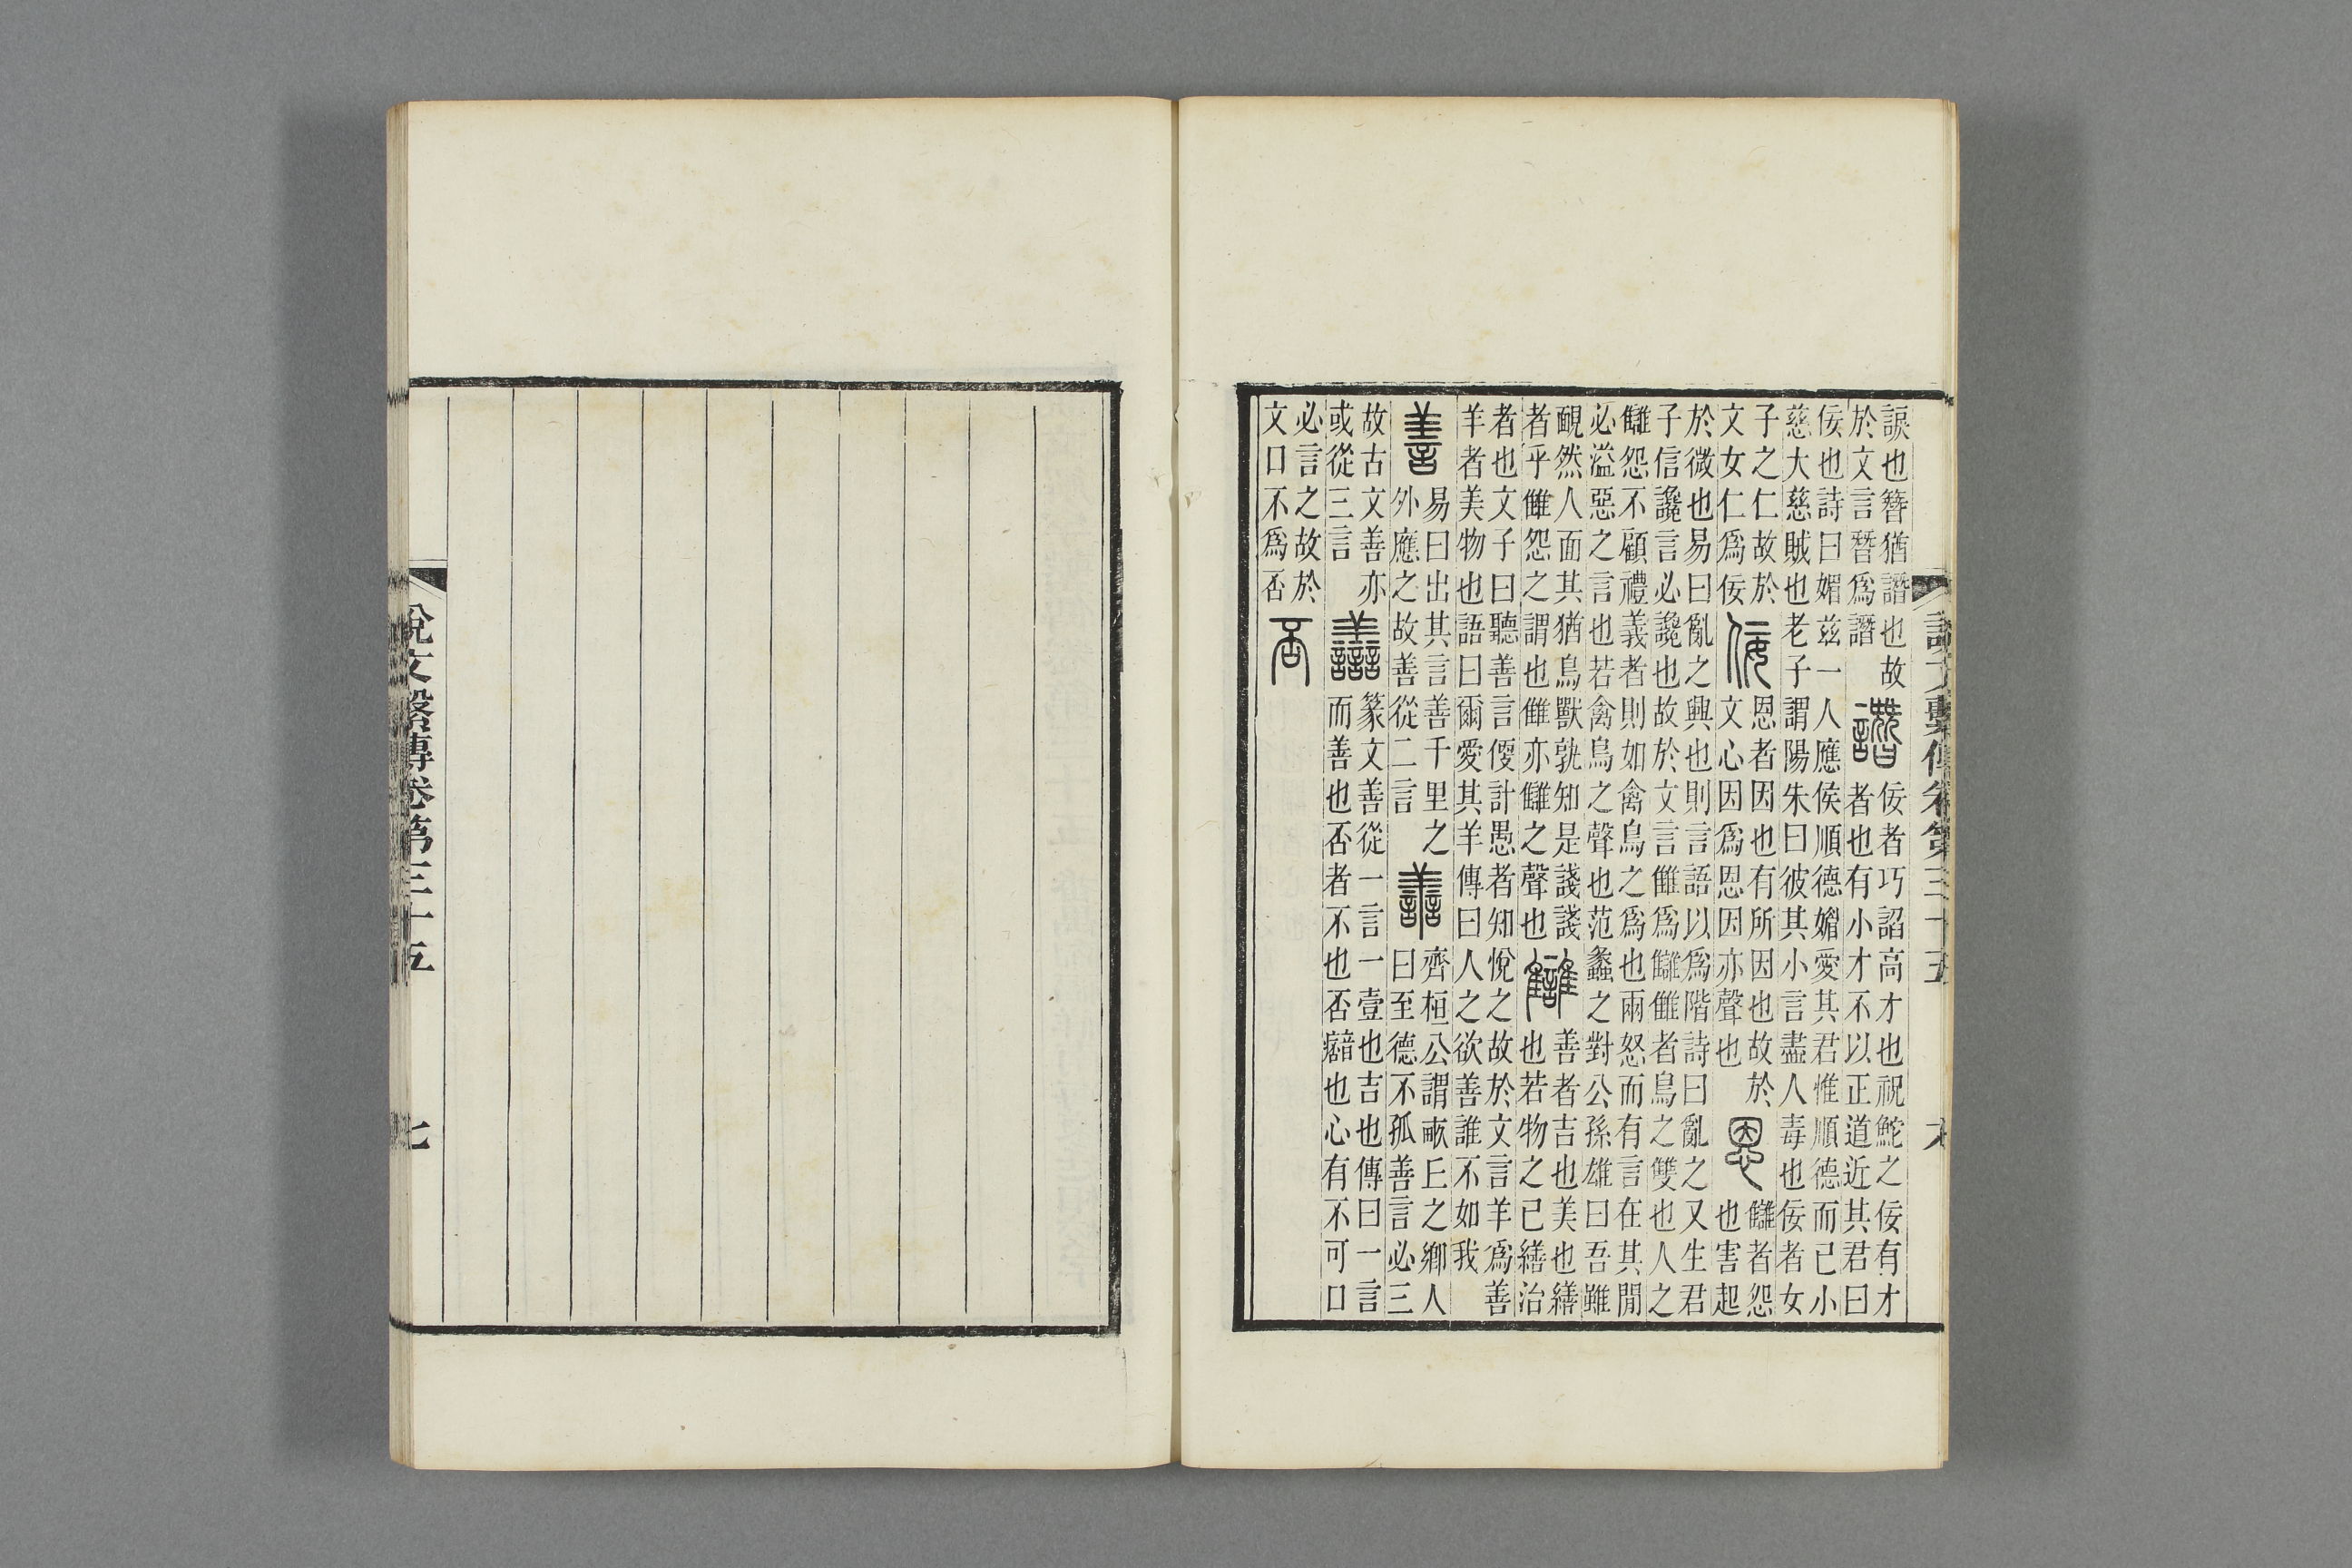 說文繫傳卷第三十五 六
也簪猶譖也故
於文言朁爲譖
譖
佞者巧諂高才也祝鮀之佞有才
者也有小才不以正道近其君曰
佞也詩曰媚兹一人應侯順德媚愛其君惟順德而已小
慈大慈賊也老子謂陽朱曰彼其小言盡人毒也佞者女
子之仁故於
文女仁爲佞
佞
恩者因也有所因也故於
文心因爲恩因亦聲也
恩
讎者怨
也害起
於微也易曰亂之興也則言語以爲階詩曰亂之又生君
子信讒言必讒也故於文言雔爲讎雔者鳥之雙也人之
讎怨不顧禮義者則如禽鳥之爲也兩怒而有言在其閒
必溢惡之言也若禽鳥之聲也范蠡之對公孫雄曰吾雖
靦然人面其猶鳥獸孰知是諓諓
者乎雔怨之謂也雔亦讎之聲也
讎
善者吉也美也繕
也若物之已繕治
者也文子曰聽善言便計愚者知悅之故於文言羊爲善
羊者美物也語曰爾愛其羊傳曰人之欲善誰不如我
善
易曰出其言善千里之
外應之故善從二言
譱
齊桓公謂畝丘之鄉人
曰至德不孤善言必三
故古文善亦
或從三言
篆文善從一言一壹也吉也傳曰一言
而善也否者不也否也心有不可口
必言之故於
文口不爲否
否
說文繫傳卷第三十五 七